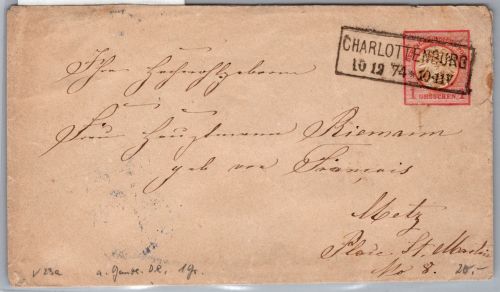 CHARLOTTENBURG
10 12 74 * 10-11V
1 GROSCHEN. 1
Ihro Hochwohlgeboren
Frau Hauptmann Riemann
geb von François
Metz
Place St. Martin
No 8.
a. Ganzs. D.R. 1 Gr.
20.-